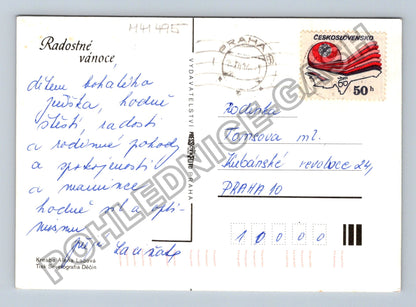 M41495
Radostné
vánoce,
dětem bohatého
ježíška, hodně
štěstí, radosti
a rodinné pohody
a spokojenosti
a mamince
hodně sil a opti-
mismu
přeje
Kresba Alena Ladová
Tisk Severografia Děčín
VYDAVATELSTVÍ PRAHA
PRAHA
ČESKOSLOVENSKO
50 h
Rodinka
ml.
Kubánské revoluce 24,
PRAHA 10
1 0 0 0 0
POHLEDNICE-GACH